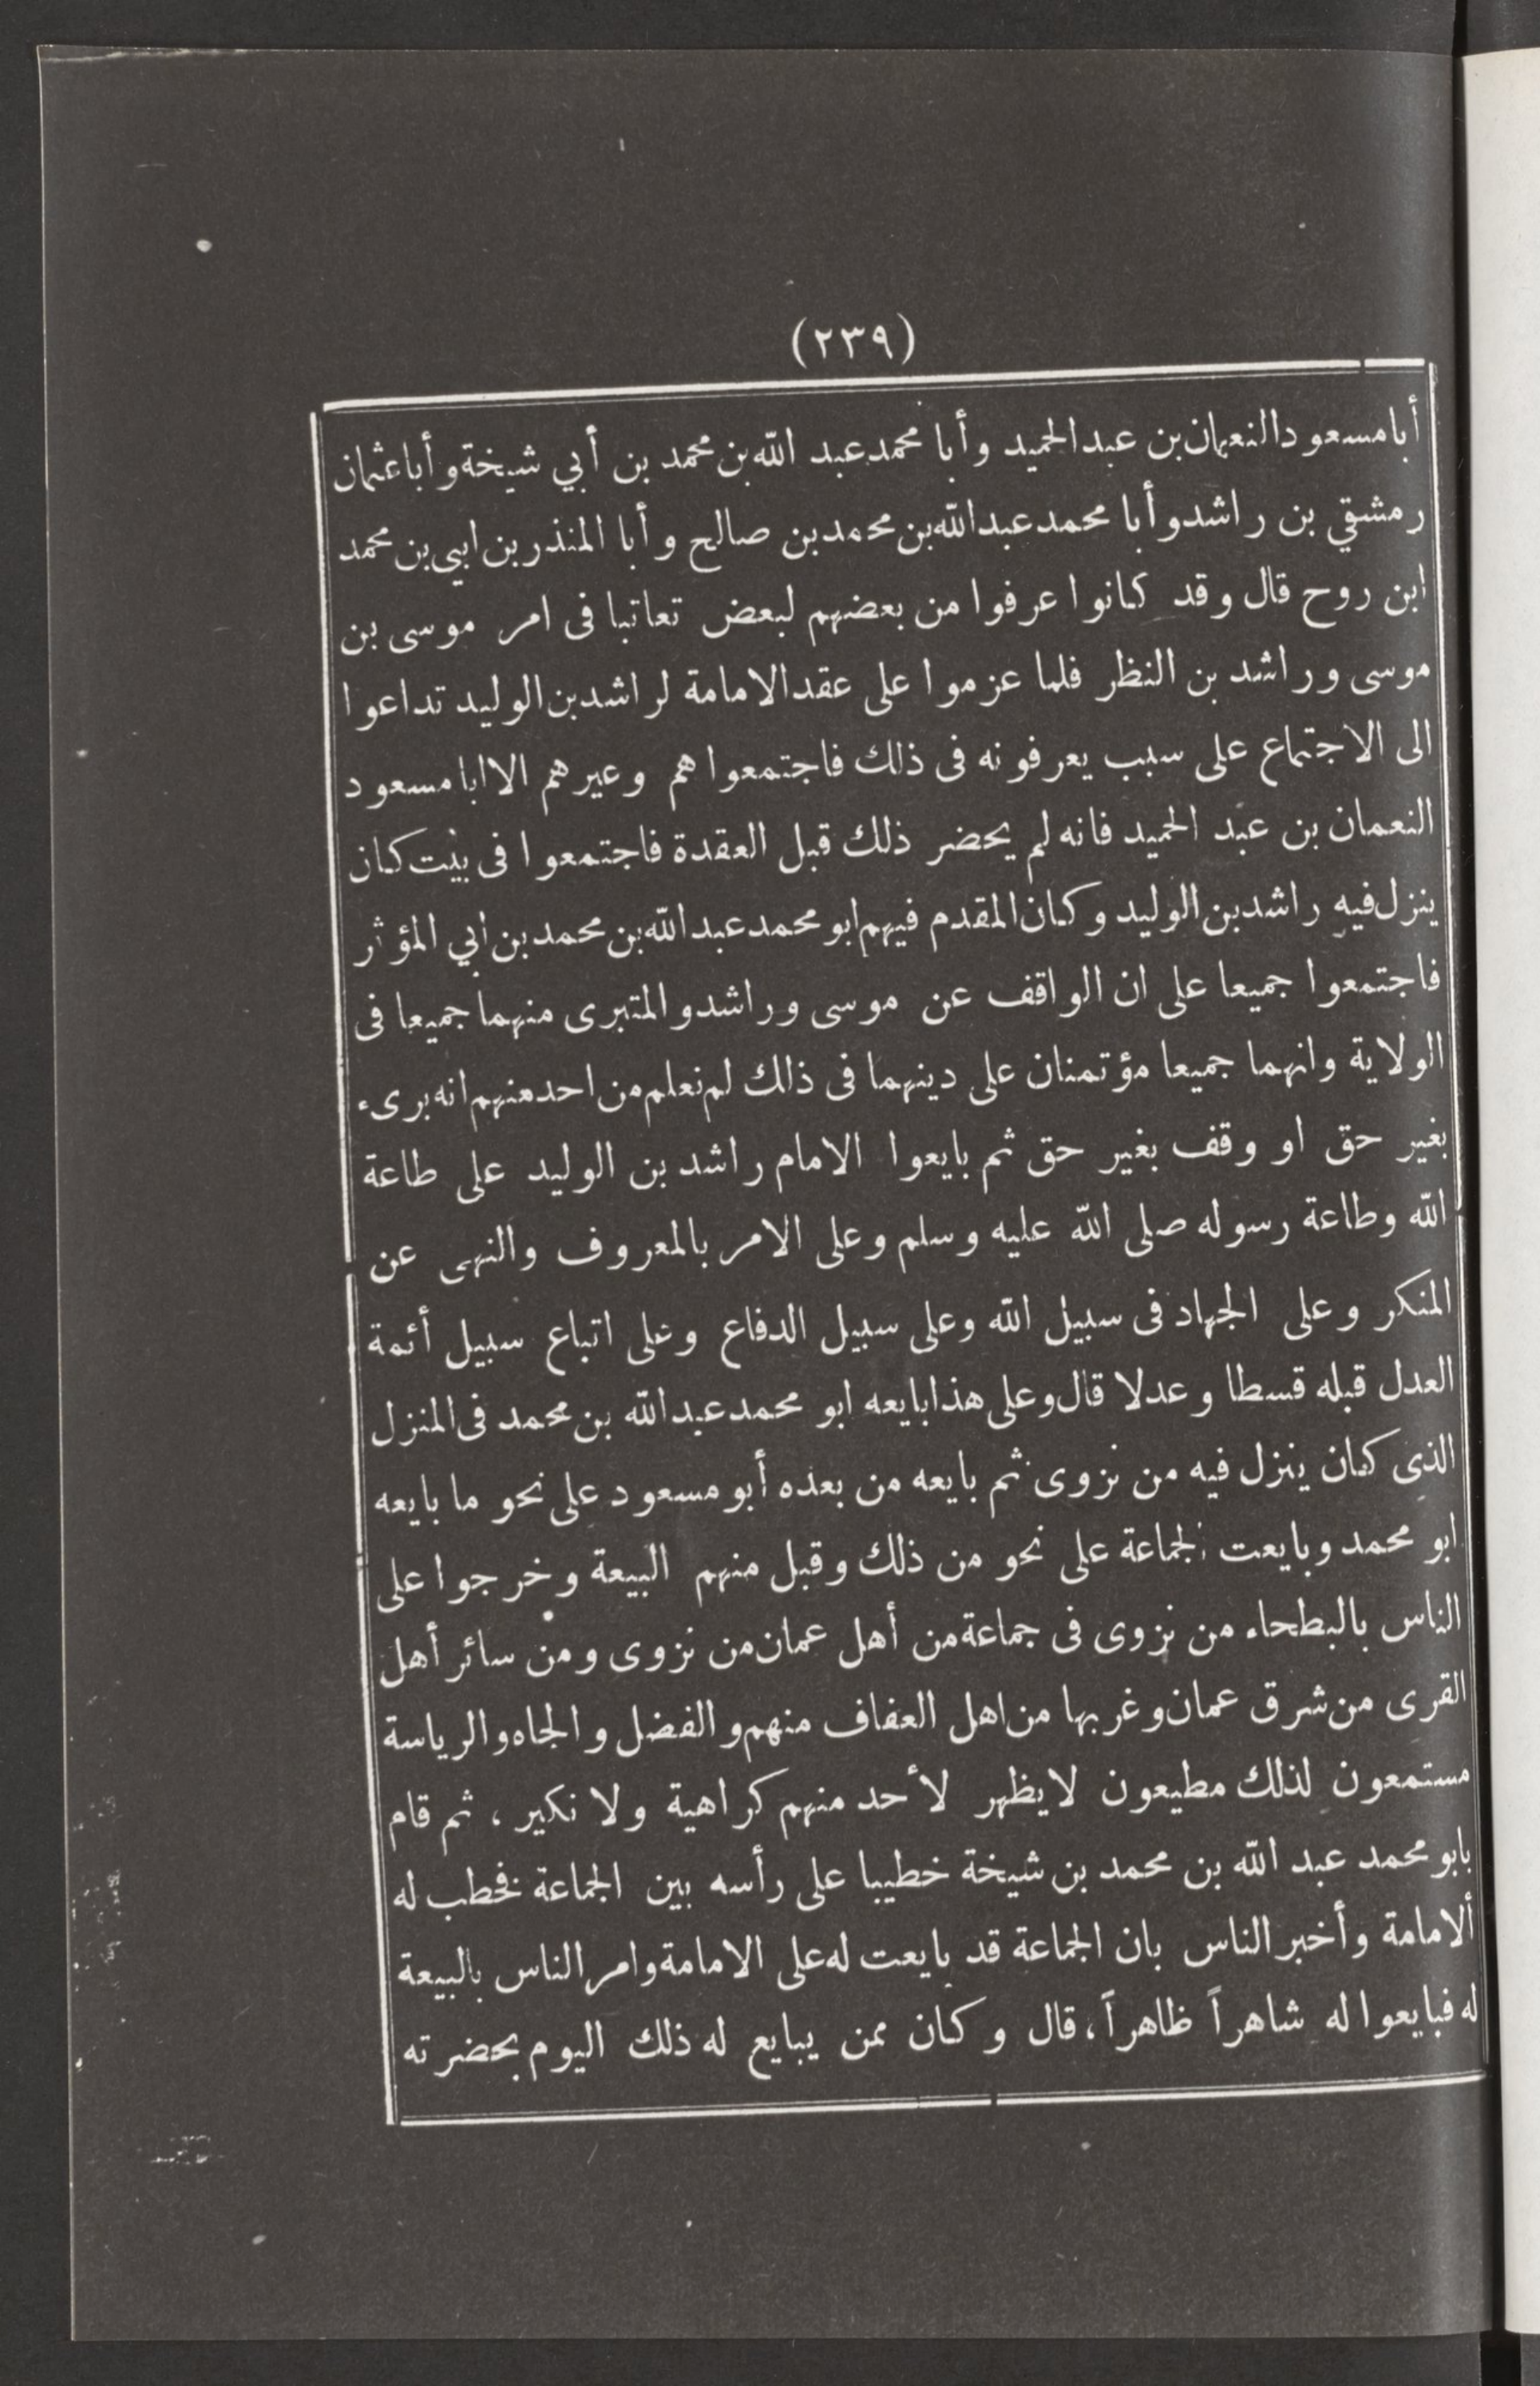 (٢٣٩)
أبا مسعود النعمان بن عبد الحميد وأبا محمد عبد الله بن محمد بن أبي شيخة وأبا عثمان
رمشقي بن راشد وأبا محمد عبد الله بن محمد بن صالح وأبا المنذر بن ابي بن محمد
ابن روح قال وقد كانوا عرفوا من بعضهم لبعض تعاتبا فى امر موسى بن
موسى وراشد بن النظر فلما عزموا على عقد الامامة لراشد بن الوليد تداعوا
الى الاجتماع على سبب يعرفونه فى ذلك فاجتمعوا هم وعيرهم الا ابا مسعود
النعمان بن عبد الحميد فانه لم يحضر ذلك قبل العقدة فاجتمعوا فى بيت كان
ينزل فيه راشد بن الوليد وكان المقدم فيهم ابو محمد عبد الله بن محمد بن أبي المؤثر
فاجتمعوا جميعا على ان الواقف عن موسى وراشد والمتبرى منهما جميعا فى
الولاية وانهما جميعا مؤتمنان على دينهما فى ذلك لم نعلم من احد منهم انه برىء
بغير حق او وقف بغير حق ثم بايعوا الامام راشد بن الوليد على طاعة
الله وطاعة رسوله صلى الله عليه وسلم وعلى الامر بالمعروف والنهى عن
المنكر وعلى الجهاد فى سبيل الله وعلى سبيل الدفاع وعلى اتباع سبيل أئمة
العدل قبله قسطا وعدلا قال وعلى هذا بايعه ابو محمد عبد الله بن محمد فى المنزل
الذى كان ينزل فيه من نزوى ثم بايعه من بعده أبو مسعود على نحو ما بايعه
ابو محمد وبايعت الجماعة على نحو من ذلك وقبل منهم البيعة وخرجوا على
الناس بالبطحاء من نزوى فى جماعة من أهل عمان من نزوى ومن سائر أهل
القرى من شرق عمان وغربها من اهل العفاف منهم والفضل والجاه والرياسة
مستمعون لذلك مطيعون لا يظهر لأحد منهم كراهية ولا نكير ، ثم قام
بابو محمد عبد الله بن محمد بن شيخة خطيبا على رأسه بين الجماعة فخطب له
ألامامة وأخبر الناس بان الجماعة قد بايعت له على الامامة وامر الناس بالبيعة
له فبايعوا له شاهراً ظاهراً ، قال وكان ممن يبايع له ذلك اليوم بحضرته